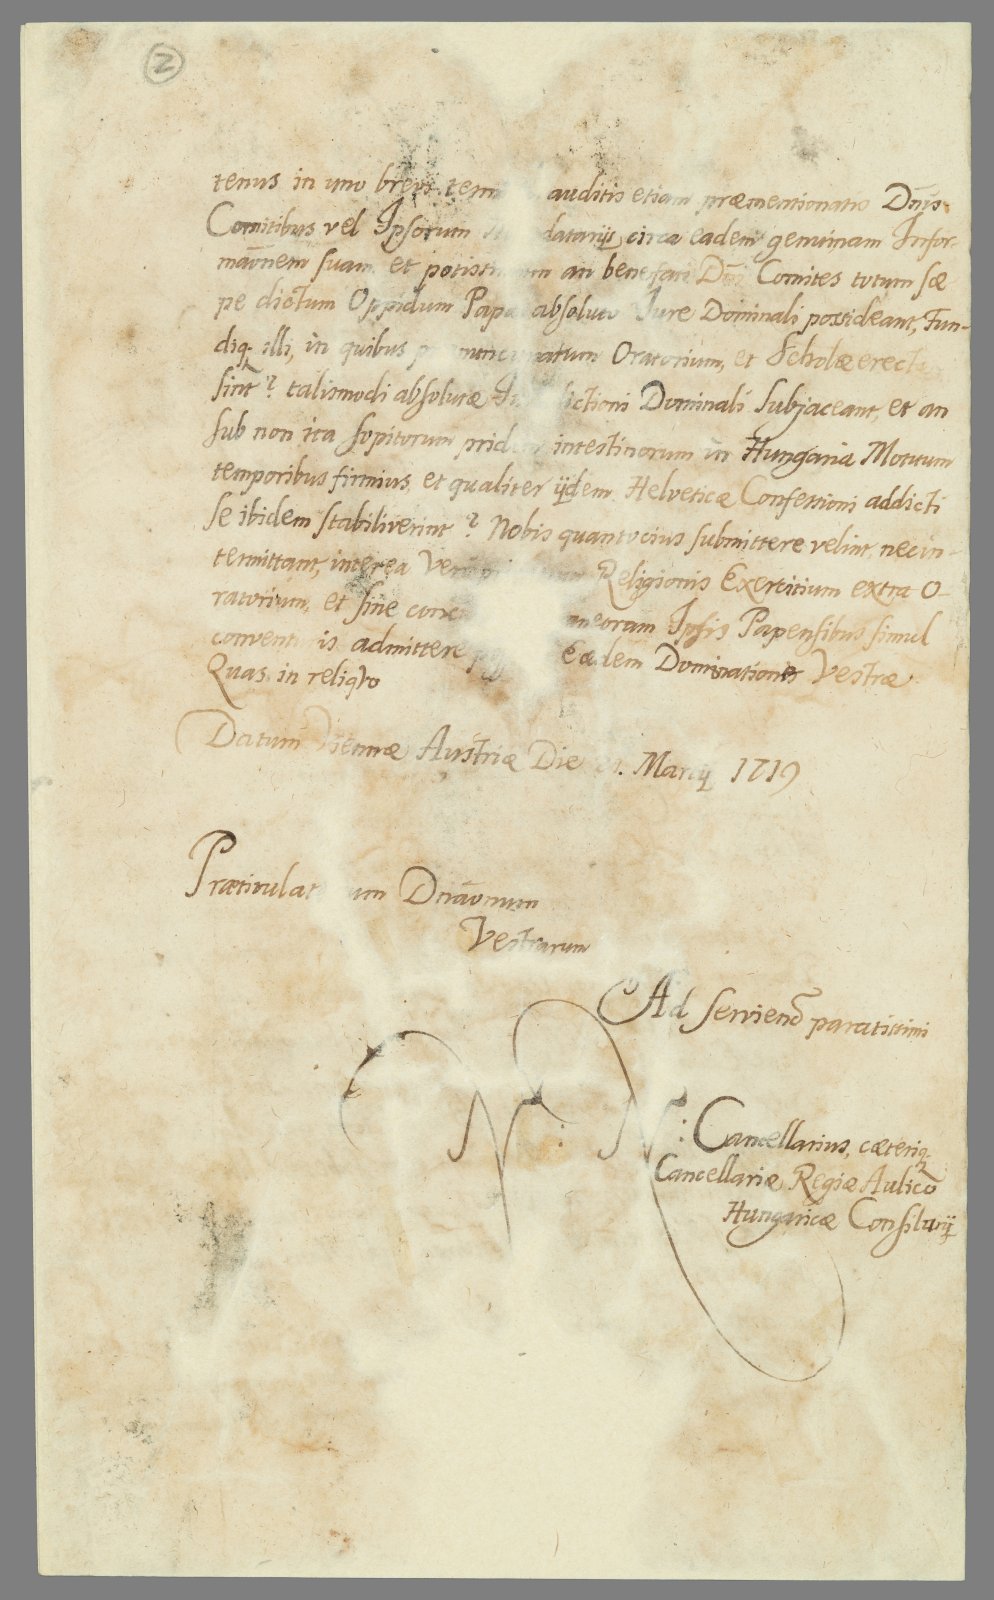 2
tenus in uno brevi auditis etiam præmentionatis Dnis
Comitibus vel Ipsorum circa eadem genuinam Infor-
māonem suam et an benefati Comites totum sæ
pe dictum Oppidum absoluto Jure Dominali possideant, Fun-
diq. illi, in quibus Oratorium, et Scholæ erectæ
sint? talismodi absolutæ Dominali subjaceant, et an
sub non ita sopitorum intestinorum in Hungaria Motuum
temporibus firmius, et qualiter ijdem Helveticæ Confessioni addicti
se ibidem stabiliverint? Nobis quantocius submittere velint, nec in-
termittant, interea Religionis Exercitium extra O-
ratorium, et sine Ipsis Papensibus simul
admittere Eædem Dominationes Vestræ
Quas in reliqvo
Datum Viennæ Austriæ Die 1719
um Dnāonum
Vestrarum
Ad serviend paratissimi
N: N: Cancellarius, cæteriq.
Cancellariæ Regiæ Aulico
Hungaricæ Consiliarij